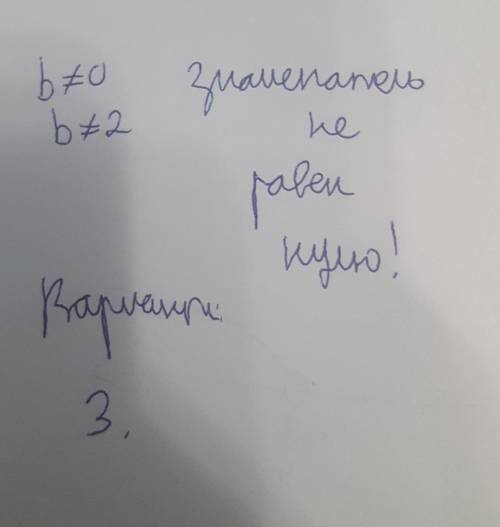 b≠0 знаменатель
b≠2 не
равен
нулю!
Вариант:
3.